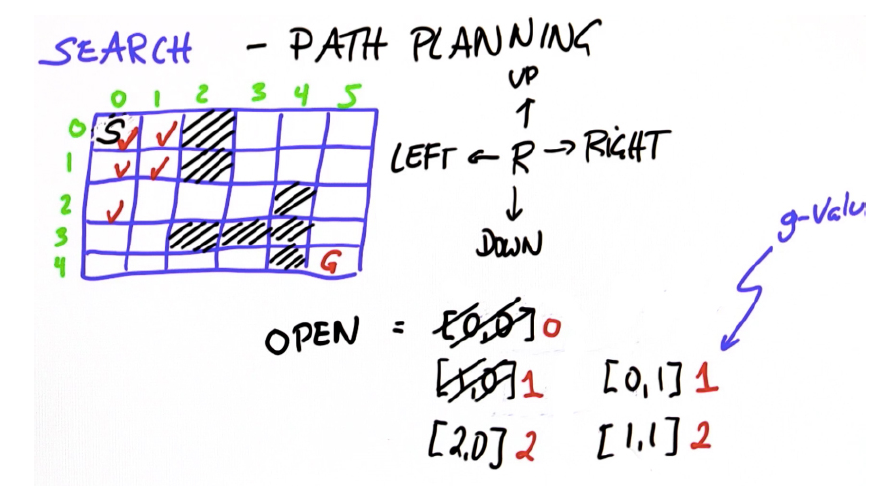 SEARCH - PATH PLANNING
UP
0 1 2 3 4 5
0 S
LEFT ← R → RIGHT
1
2
DOWN
3
4 G
g-Valu
OPEN = [0,0] 0
[1,0] 1 [0,1] 1
[2,0] 2 [1,1] 2